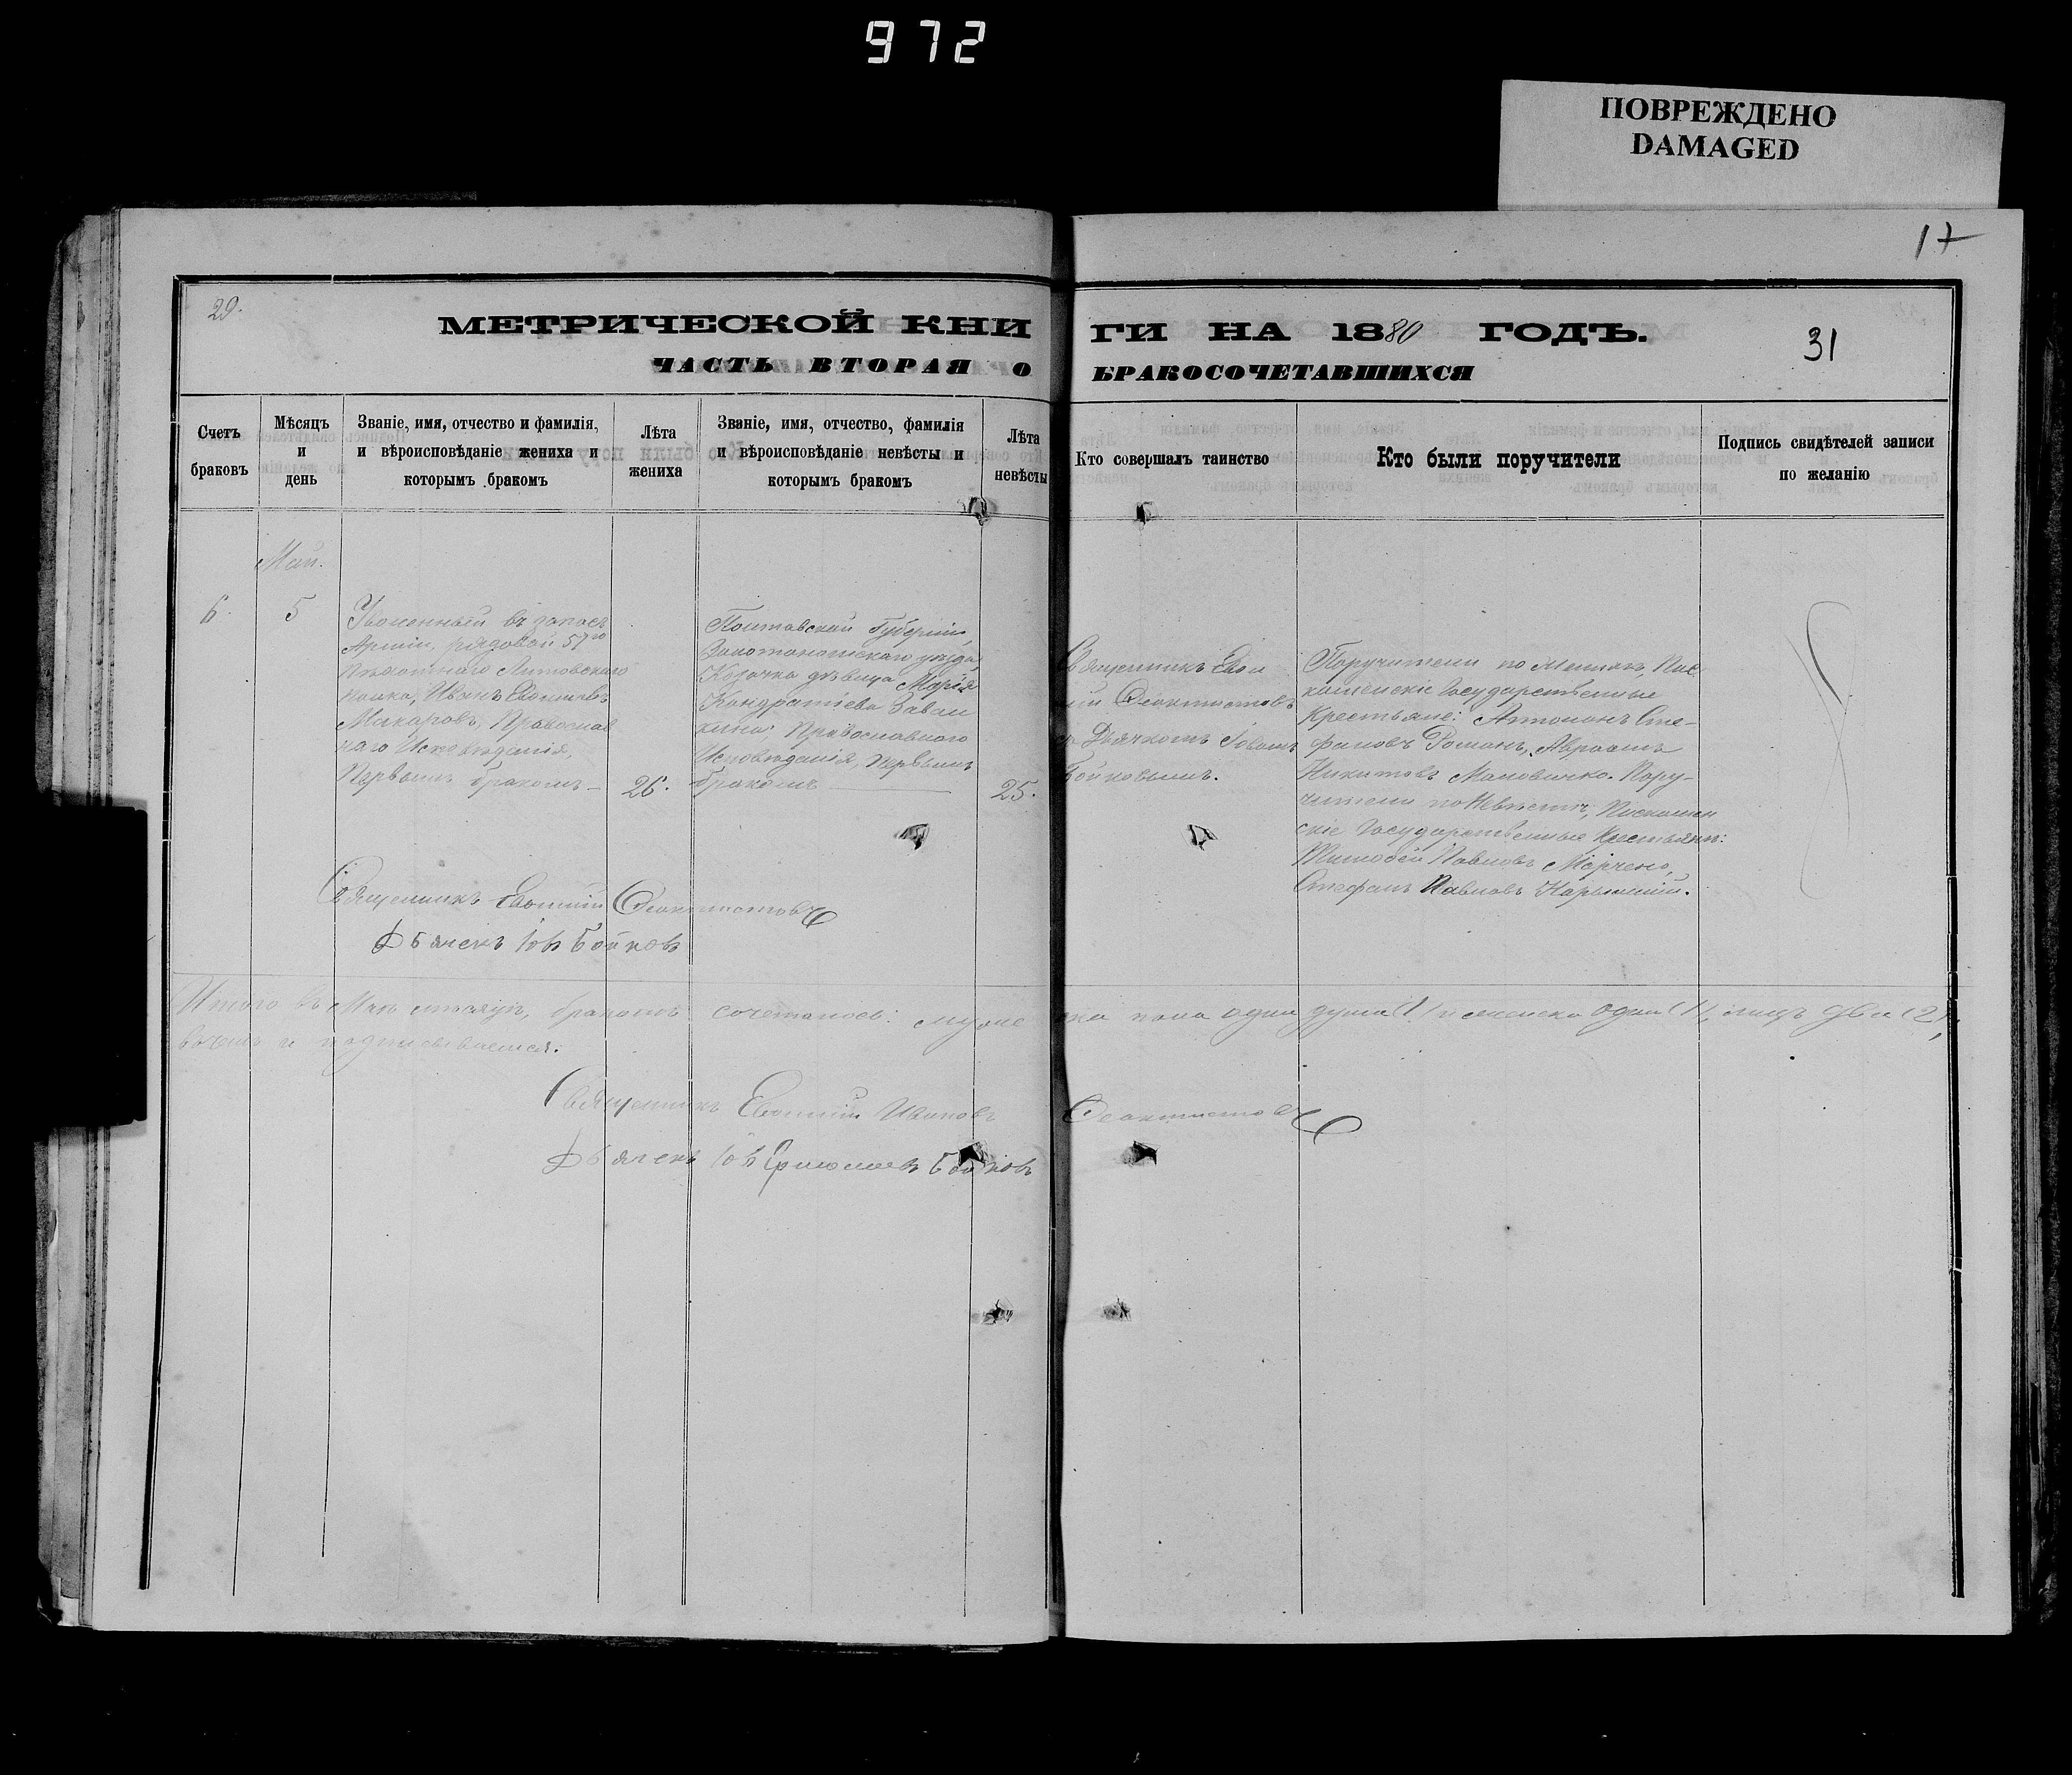 972
ПОВРЕЖДЕНО
DAMAGED
17
29.
МЕТРИЧЕСКОЙ КНИ
ГИ НА 1880 ГОДЪ.
31
ЧАСТЬ ВТОРАЯ О
БРАКОСОЧЕТАВШИХСЯ
Счетъ
браковъ
Мѣсяцъ
и
день
Званіе, имя, отчество и фамилія,
и вѣроисповѣданіе жениха и
которымъ бракомъ
Лѣта
жениха
Званіе, имя, отчество, фамилія
и вѣроисповѣданіе невѣсты и
которымъ бракомъ
Лѣта
невѣсты
Кто совершалъ таинство
Кто были поручители
Подпись свидѣтелей записи
по желанію
Май.
6.
5
Уволенный въ запасъ
Армiи, рядовой 57го
пѣхотнаго
полка, Иванъ
Макаровъ, Православ
наго Исповѣданія,
Первымъ бракомъ
26.
Полтавской Губерніи,
Золотоношскаго уѣзда
Козачка дѣвица Марія
Кондратіева
Православнаго
Исповѣданія, первымъ
бракомъ
25.
Священникъ Евѳи
мій Ѳеоктистовъ
съ Дьячкомъ Іовомъ
Бойковымъ.
Поручители по Женихѣ,
Государственные
Крестьяне: Антонъ Сте-
фановъ Романъ, Авраамъ
Никитовъ Пору-
чители по Невѣстѣ,
скіе Государственные Крестьяне:
Тимофей Павловъ
Стефанъ Павловъ
Священникъ Евѳимій Ѳеоктистовъ
Дьячекъ Іовъ Бойковъ
Итого въ Маѣ мѣсяцѣ, бракомъ сочеталось: муже
ска пола одна душа (1) и женска одна (1), лицъ два (2),
въ чемъ и подписываемся:
Священникъ Евѳимій Ивановъ Ѳеоктистовъ
Дьячекъ Іовъ Ермолаевъ Бойковъ